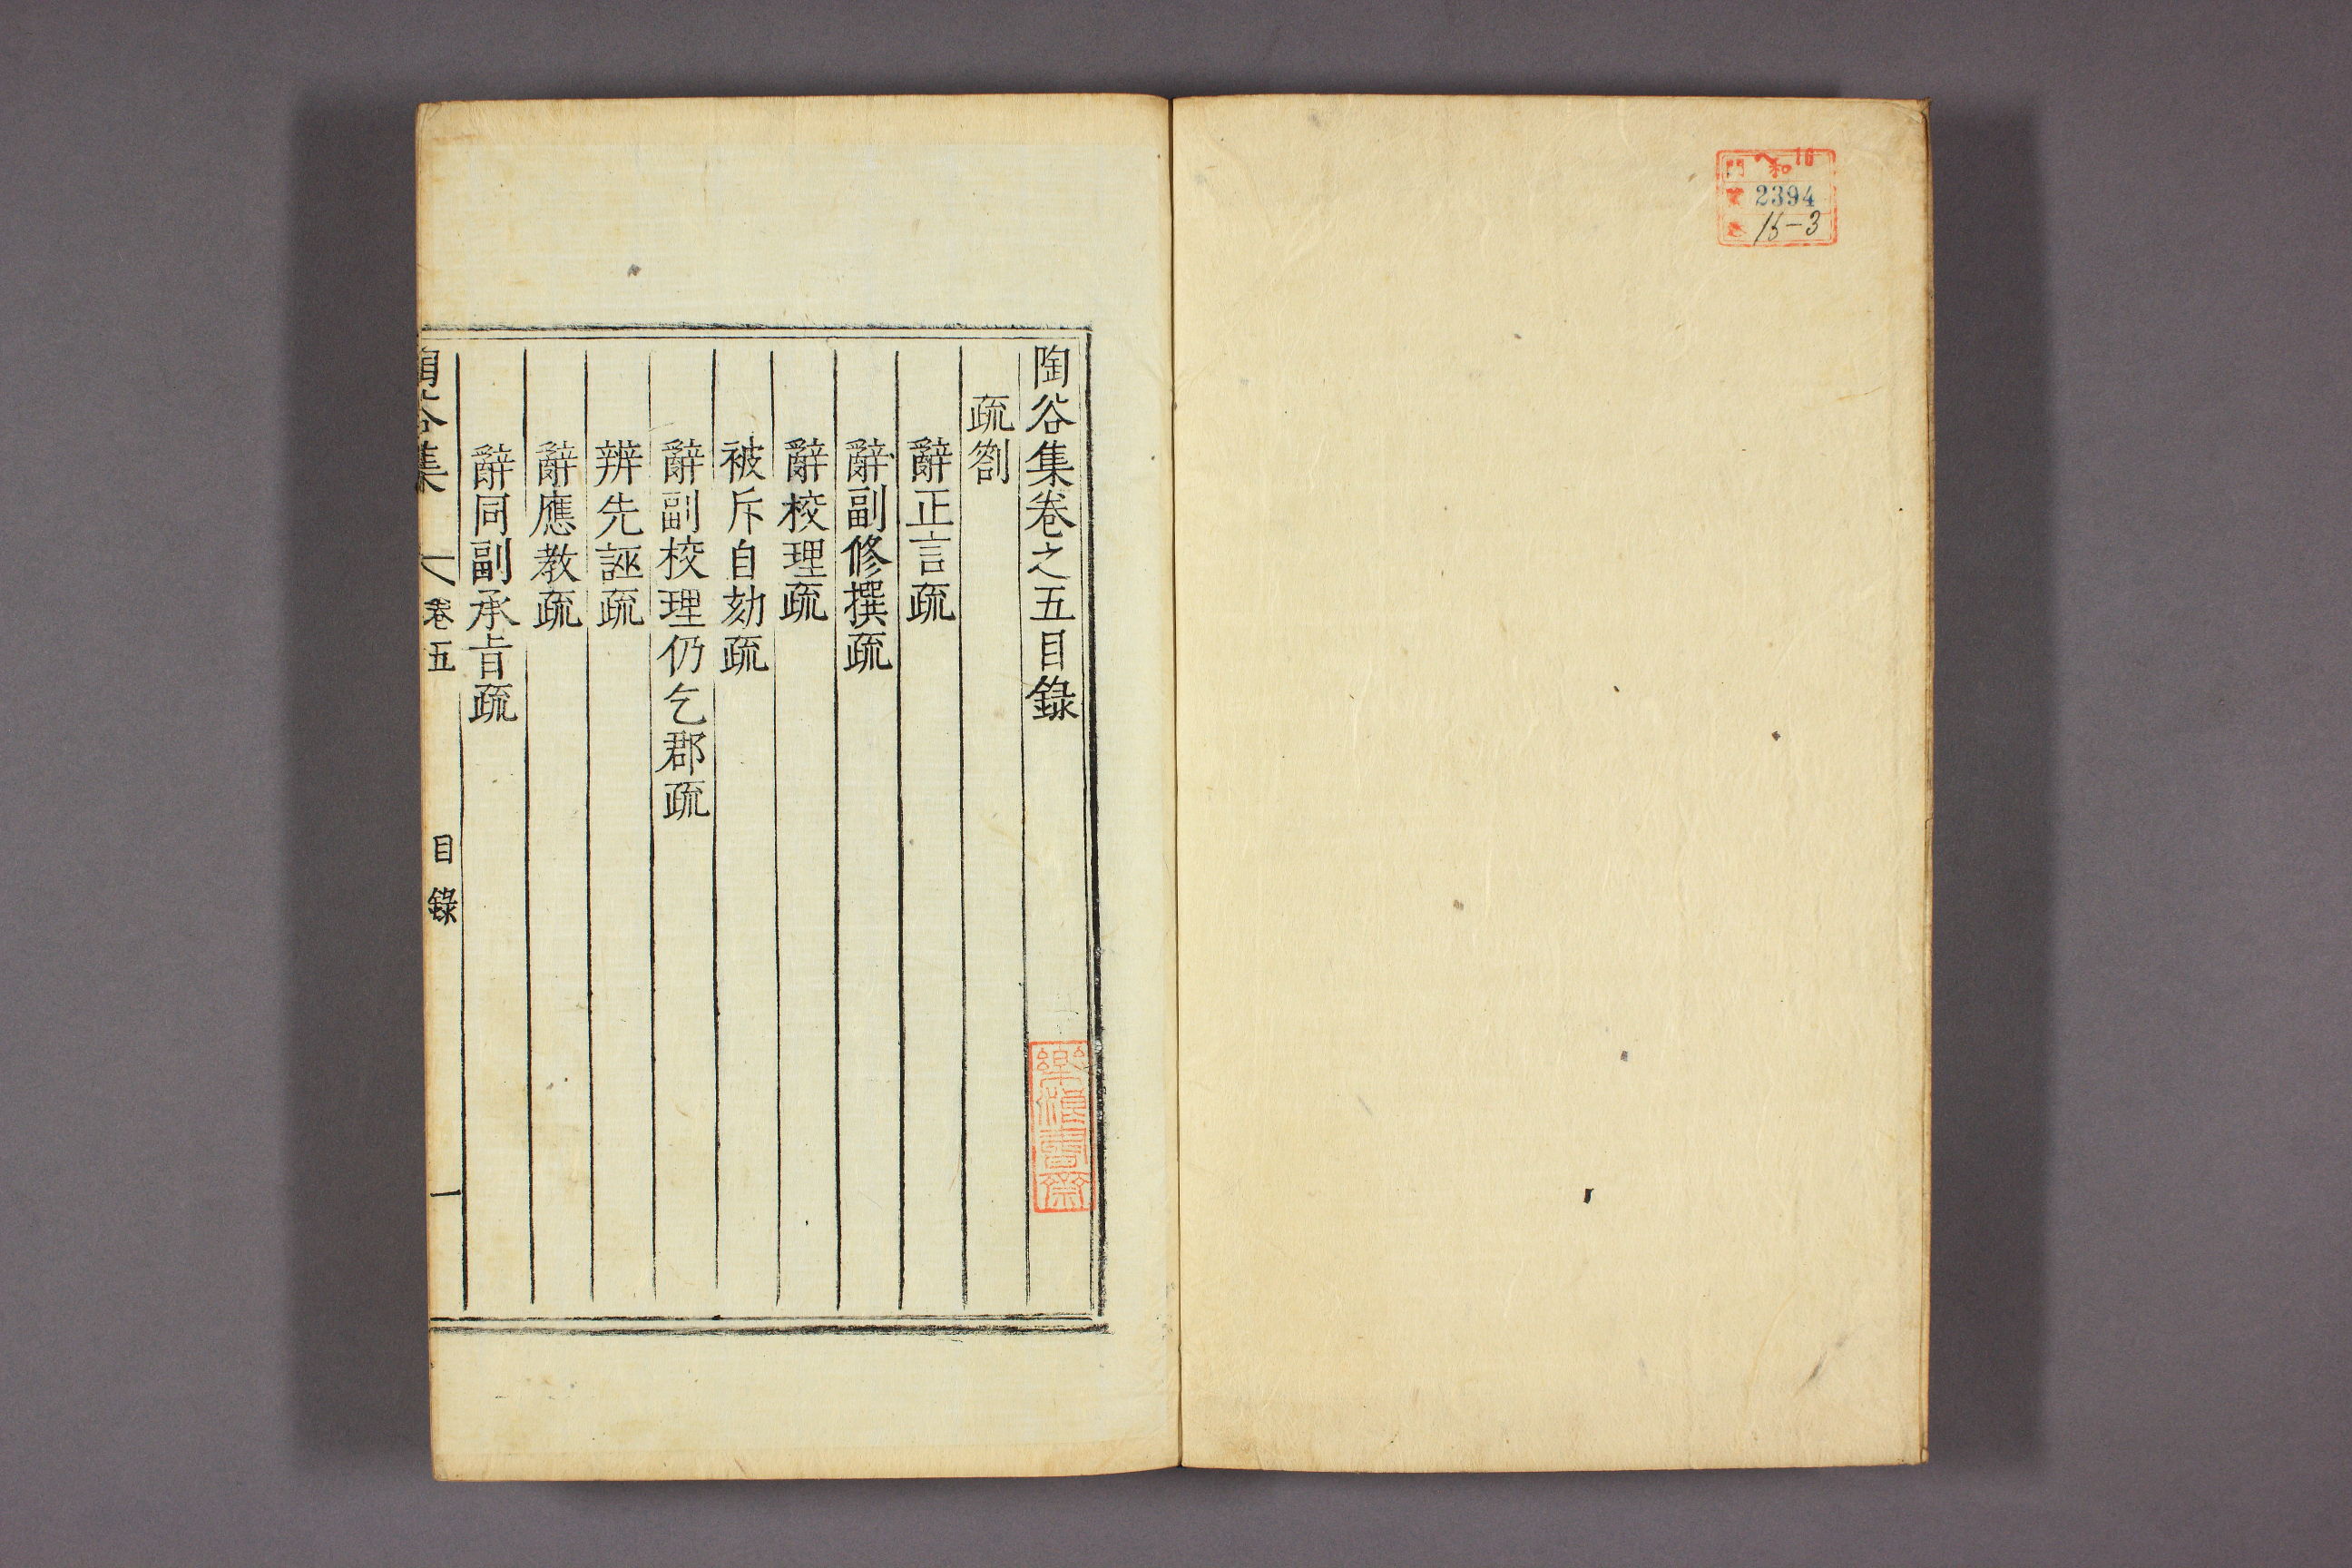 門 ヘ16 和
號 2394
卷 15-3
陶谷集卷之五目錄
疏劄
辭正言疏
辭副修撰疏
辭校理疏
被斥自劾疏
辭副校理仍乞郡疏
辨先誣疏
辭應教疏
辭同副承旨疏
陶谷集 卷五 目錄 一